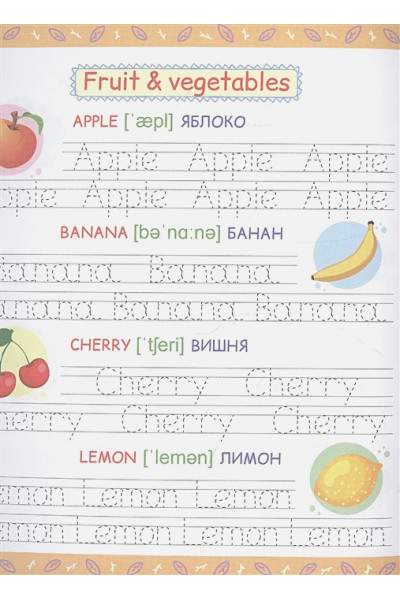 Fruit & vegetables
APPLE [ˈæpl] ЯБЛОКО
Apple Apple Apple
Apple Apple Apple Apple
BANANA [bəˈnɑːnə] БАНАН
Banana Banana
Banana Banana Banana
CHERRY [ˈtʃeri] ВИШНЯ
Cherry Cherry
Cherry Cherry Cherry
LEMON [ˈlemən] ЛИМОН
Lemon Lemon Lemon
Lemon Lemon Lemon Lemon